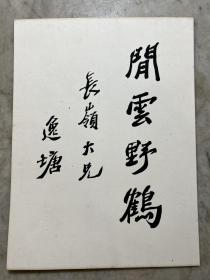 閒雲野鶴
長嶺大兄
逸塘